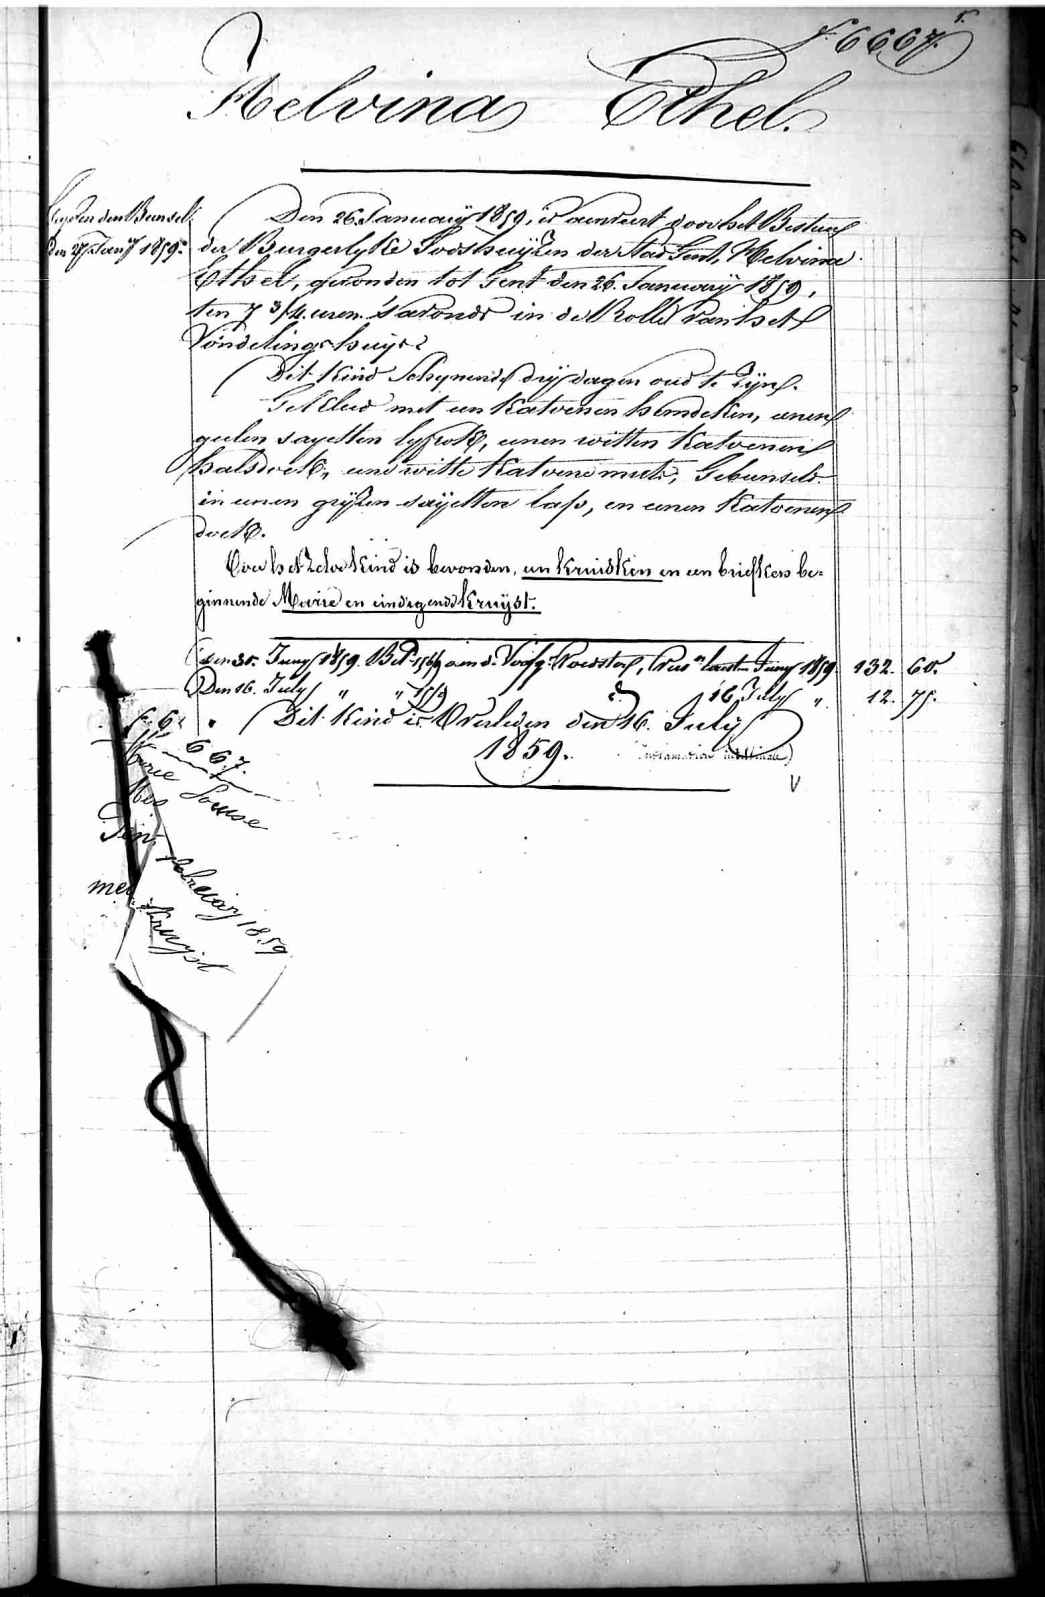 f. 6667. r.
Melvina Ethel.
den 27 Janij 1859.
Den 26 January 1859, is aenveert door het Bestuer
der Burgerlyke Godshuijzen der Stad Gent, Melvina
Ethel, gevonden tot Gent den 26. January 1859,
ten 7 3/4 uren 's avonds in de Rolle van het
Vondelingshuijs.
Dit Kind Schynende drij dagen oud te zijn.
Gekleed met een Katoenen hemdeken, eenen
geelen sayetten lyfrok, eenen witten Katoenen
halsdoek, eene witte Katoene muts, Gebunseld
in eenen grijzen saijetten lap, en eenen Katoenen
doek.
Over het Zelve Kind is bevonden, een Kruisken en een briefken be-
ginnende Marie en eindigende Kruyst.
den 30. Juny 1859. Bet. aen d. Juny 1859. 132. 60.
Den 16. July " " do 16 July " 12. 75.
Dit Kind is Overleden den 16. July
1859.
f. 6667.
Marie Louise
Gent February 1859
met Kruyst